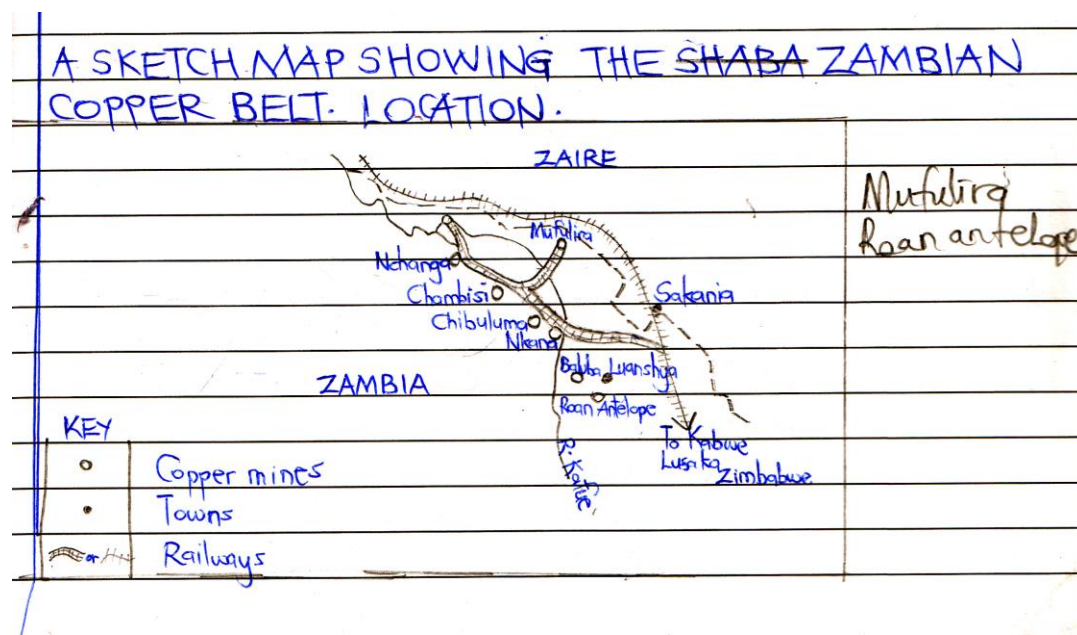 A SKETCH MAP SHOWING THE SHABA ZAMBIAN
COPPER BELT. LOCATION.
ZAIRE
Mufulira
Roan antelope
Mufulira
Nchanga
Chambisi
Sakania
Chibuluma
Nkana
Baluba Luanshya
ZAMBIA
Roan Antelope
KEY
To Kabwe
Lusaka
Zimbabwe
R. Kafue
Copper mines
Towns
or
Railways